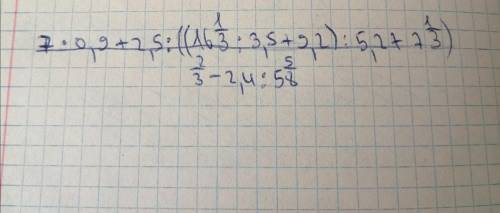 7 · 0,9 + 2,5 : ((16 1/3 : 3,5 + 9,2) : 5,2 + 7 1/3)
2/3 - 2,4 : 5 5/8